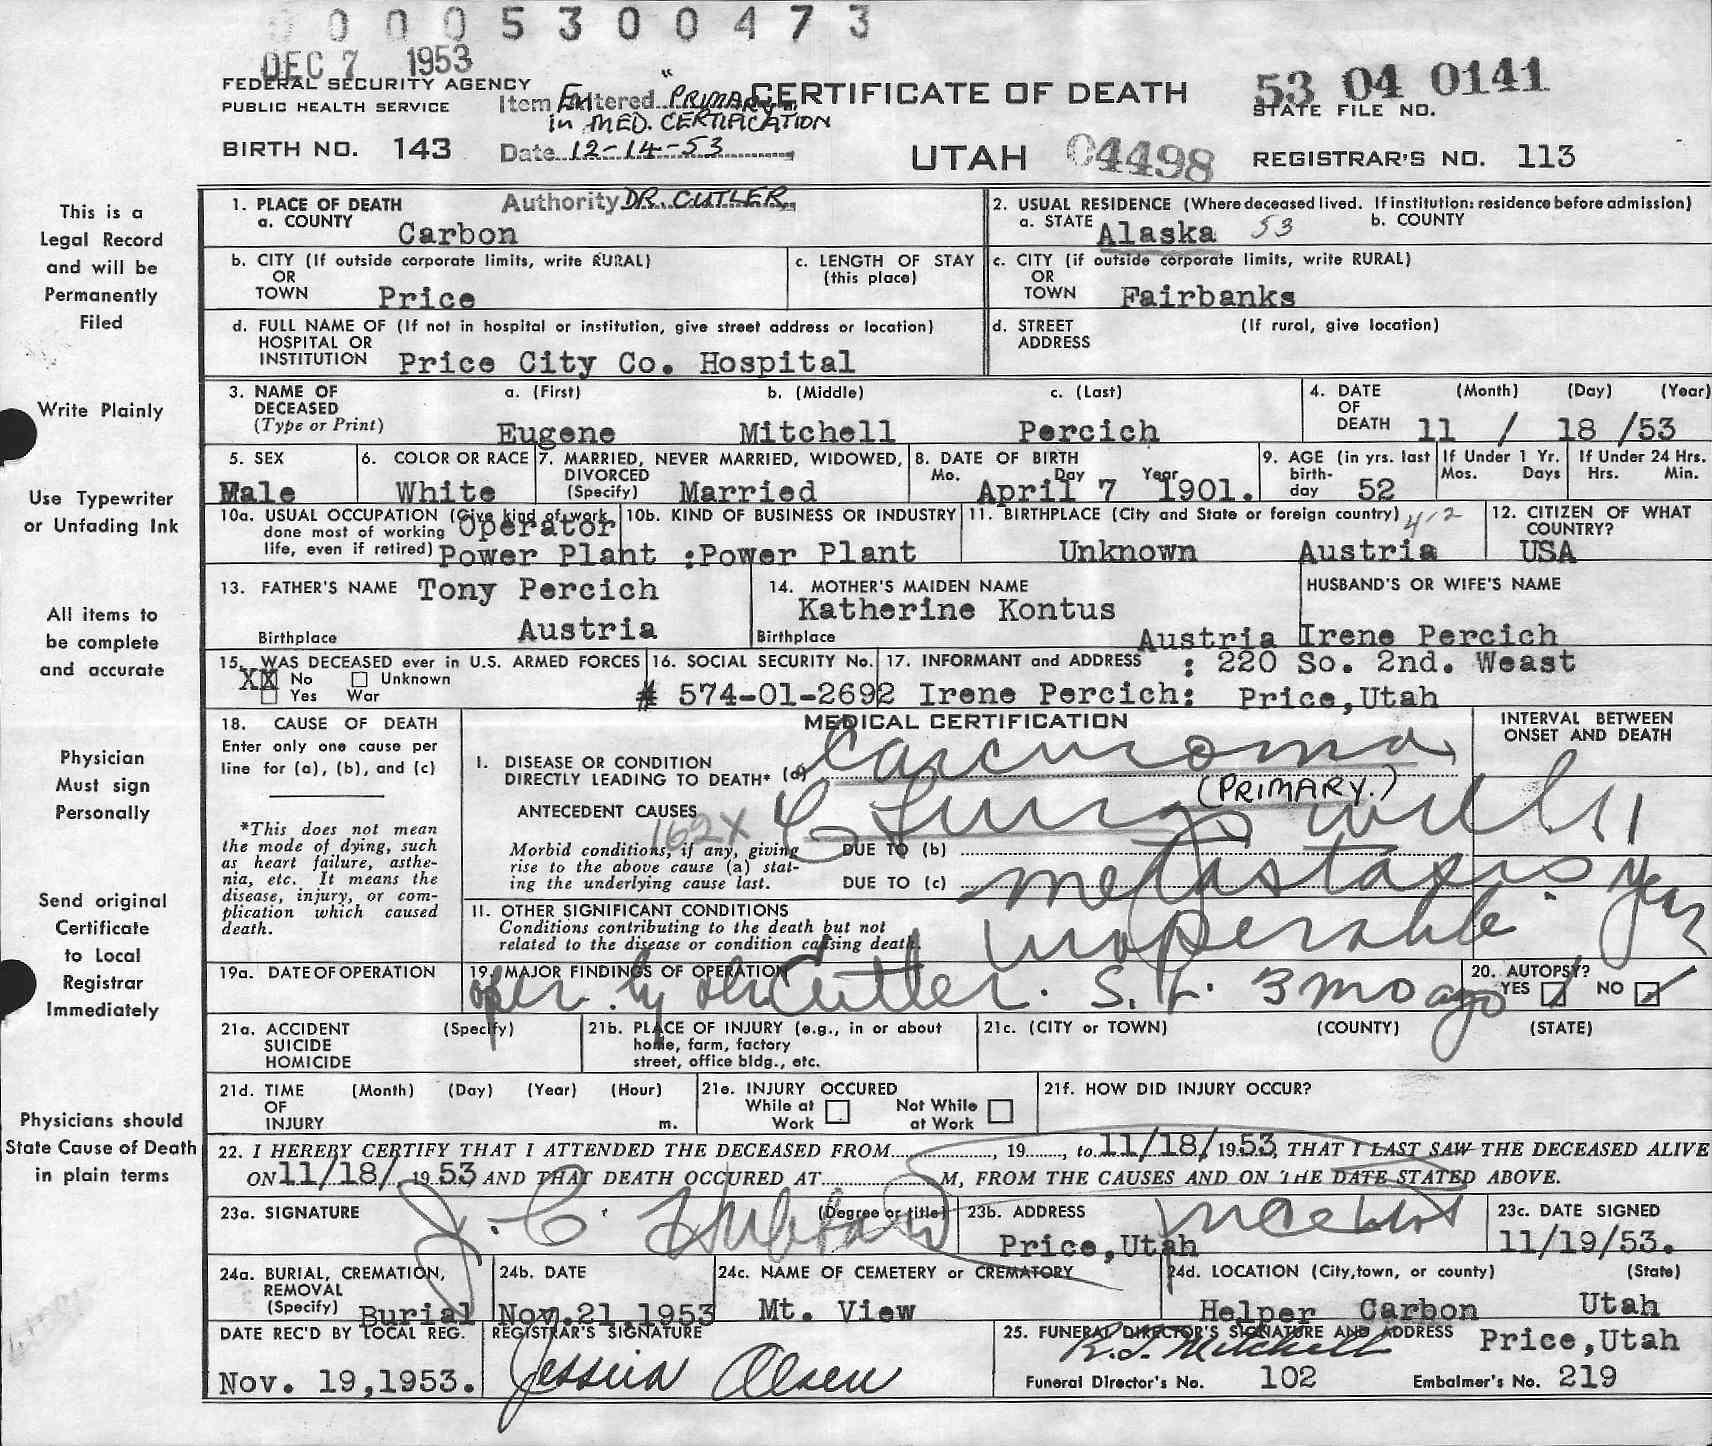 0 0 0 5 3 0 0 4 7 3
DEC 7 1953
FEDERAL SECURITY AGENCY
PUBLIC HEALTH SERVICE
Item Entered "PRIMARY"
in MED. CERTIFICATION
Date 12-14-53
Authority DR. CUTLER
CERTIFICATE OF DEATH
53 04 0141
STATE FILE NO.
BIRTH NO. 143
UTAH 04498
REGISTRAR'S NO. 113
This is a
Legal Record
and will be
Permanently
Filed
1. PLACE OF DEATH
a. COUNTY Carbon
2. USUAL RESIDENCE (Where deceased lived. If institution: residence before admission)
a. STATE Alaska 53 b. COUNTY
b. CITY (If outside corporate limits, write RURAL)
OR
TOWN Price
c. LENGTH OF STAY
(this place)
c. CITY (if outside corporate limits, write RURAL)
OR
TOWN Fairbanks
d. FULL NAME OF (If not in hospital or institution, give street address or location)
HOSPITAL OR
INSTITUTION Price City Co. Hospital
d. STREET (If rural, give location)
ADDRESS
Write Plainly
3. NAME OF a. (First) b. (Middle) c. (Last)
DECEASED
(Type or Print) Eugene Mitchell Percich
4. DATE (Month) (Day) (Year)
OF
DEATH 11 / 18 /53
Use Typewriter
or Unfading Ink
5. SEX
Male
6. COLOR OR RACE
White
7. MARRIED, NEVER MARRIED, WIDOWED,
DIVORCED
(Specify) Married
8. DATE OF BIRTH
Mo. Day Year
April 7 1901.
9. AGE (in yrs. last
birth-
day 52
If Under 1 Yr.
Mos. Days
If Under 24 Hrs.
Hrs. Min.
10a. USUAL OCCUPATION (Give kind of work
done most of working
life, even if retired) Operator
Power Plant
10b. KIND OF BUSINESS OR INDUSTRY
:Power Plant
11. BIRTHPLACE (City and State or foreign country) 412
Unknown Austria
12. CITIZEN OF WHAT
COUNTRY?
USA
All items to
be complete
and accurate
13. FATHER'S NAME Tony Percich
Birthplace Austria
14. MOTHER'S MAIDEN NAME
Katherine Kontus
Birthplace Austria
HUSBAND'S OR WIFE'S NAME
Irene Percich
15. WAS DECEASED ever in U.S. ARMED FORCES
XX No Unknown
Yes War
16. SOCIAL SECURITY No.
# 574-01-2692
17. INFORMANT and ADDRESS : 220 So. 2nd. Weast
Irene Percich: Price,Utah
Physician
Must sign
Personally
18. CAUSE OF DEATH
Enter only one cause per
line for (a), (b), and (c)
*This does not mean
the mode of dying, such
as heart failure, asthe-
nia, etc. It means the
disease, injury, or com-
plication which caused
death.
MEDICAL CERTIFICATION
INTERVAL BETWEEN
ONSET AND DEATH
I. DISEASE OR CONDITION
DIRECTLY LEADING TO DEATH* (a) Carcinoma
(PRIMARY.)
ANTECEDENT CAUSES
162X Lung with
Morbid conditions, if any, giving
rise to the above cause (a) stat-
ing the underlying cause last.
DUE TO (b)
DUE TO (c) metastasis
1 year
II. OTHER SIGNIFICANT CONDITIONS
Conditions contributing to the death but not
related to the disease or condition causing death.
inoperable
Send original
Certificate
to Local
Registrar
Immediately
19a. DATE OF OPERATION
19. MAJOR FINDINGS OF OPERATION
oper. by Dr Cutler. S. L. 3 mo ago
20. AUTOPSY?
YES NO
21a. ACCIDENT (Specify)
SUICIDE
HOMICIDE
21b. PLACE OF INJURY (e.g., in or about
home, farm, factory
street, office bldg., etc.
21c. (CITY or TOWN) (COUNTY) (STATE)
21d. TIME (Month) (Day) (Year) (Hour)
OF
INJURY m.
21e. INJURY OCCURED
While at Work
Not While at Work
21f. HOW DID INJURY OCCUR?
Physicians should
State Cause of Death
in plain terms
22. I HEREBY CERTIFY THAT I ATTENDED THE DECEASED FROM ..... , 19 ....., to 11/18/ 1953, THAT I LAST SAW THE DECEASED ALIVE
ON 11/18/, 1953 AND THAT DEATH OCCURED AT ..... M, FROM THE CAUSES AND ON THE DATE STATED ABOVE.
23a. SIGNATURE (Degree or title)
J. C. Hubbard
23b. ADDRESS
Price,Utah
23c. DATE SIGNED
11/19/53.
24a. BURIAL, CREMATION,
REMOVAL
(Specify) Burial
24b. DATE
Nov.21,1953
24c. NAME OF CEMETERY or CREMATORY
Mt. View
24d. LOCATION (City,town, or county) (State)
Helper Carbon Utah
DATE REC'D BY LOCAL REG.
Nov. 19,1953.
REGISTRAR'S SIGNATURE
Jessica Olsen
25. FUNERAL DIRECTOR'S SIGNATURE AND ADDRESS Price,Utah
R.J. Mitchell
Funeral Director's No. 102 Embalmer's No. 219